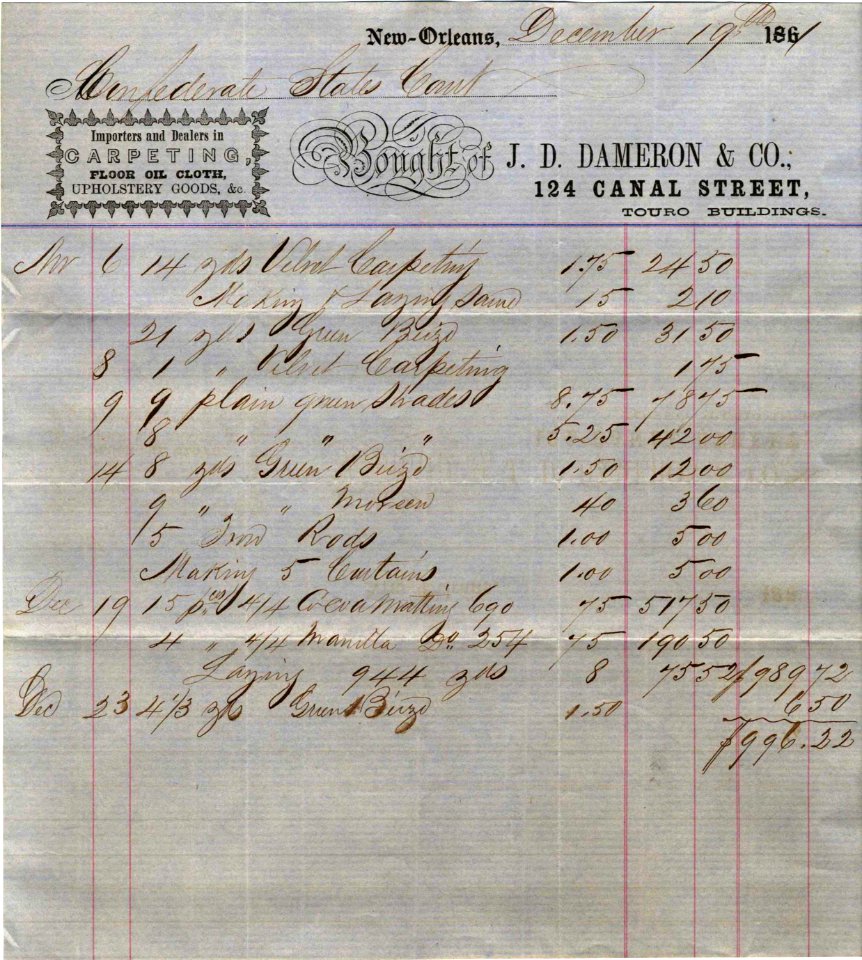 New-Orleans, December 19th 1861
Confederate States Court
Importers and Dealers in
CARPETING,
FLOOR OIL CLOTH,
UPHOLSTERY GOODS, &c.
Bought of J. D. DAMERON & CO.,
124 CANAL STREET,
TOURO BUILDINGS.
Nov 6 14 yds Velvet Carpeting 1.75 24 50
Making & Laying same 15 2 10
21 yds Green Beize 1.50 31 50
8 1 " Velvet Carpeting 1 75
9 9 plain green shades 8.75 78 75
8 " " " 5.25 42 00
14 8 yds Green Beize 1.50 12 00
9 " " Moreen 40 3 60
5 Iron Rods 1.00 5 00
Making 5 Curtains 1.00 5 00
Dec 19 15 pces 4/4 Matting 690 75 517 50
4 " 4/4 Manilla Do 254 75 190 50
Laying 944 yds 8 75 52 $989 72
Dec 23 4 1/3 yds Green Beize 1.50 6 50
$996.22